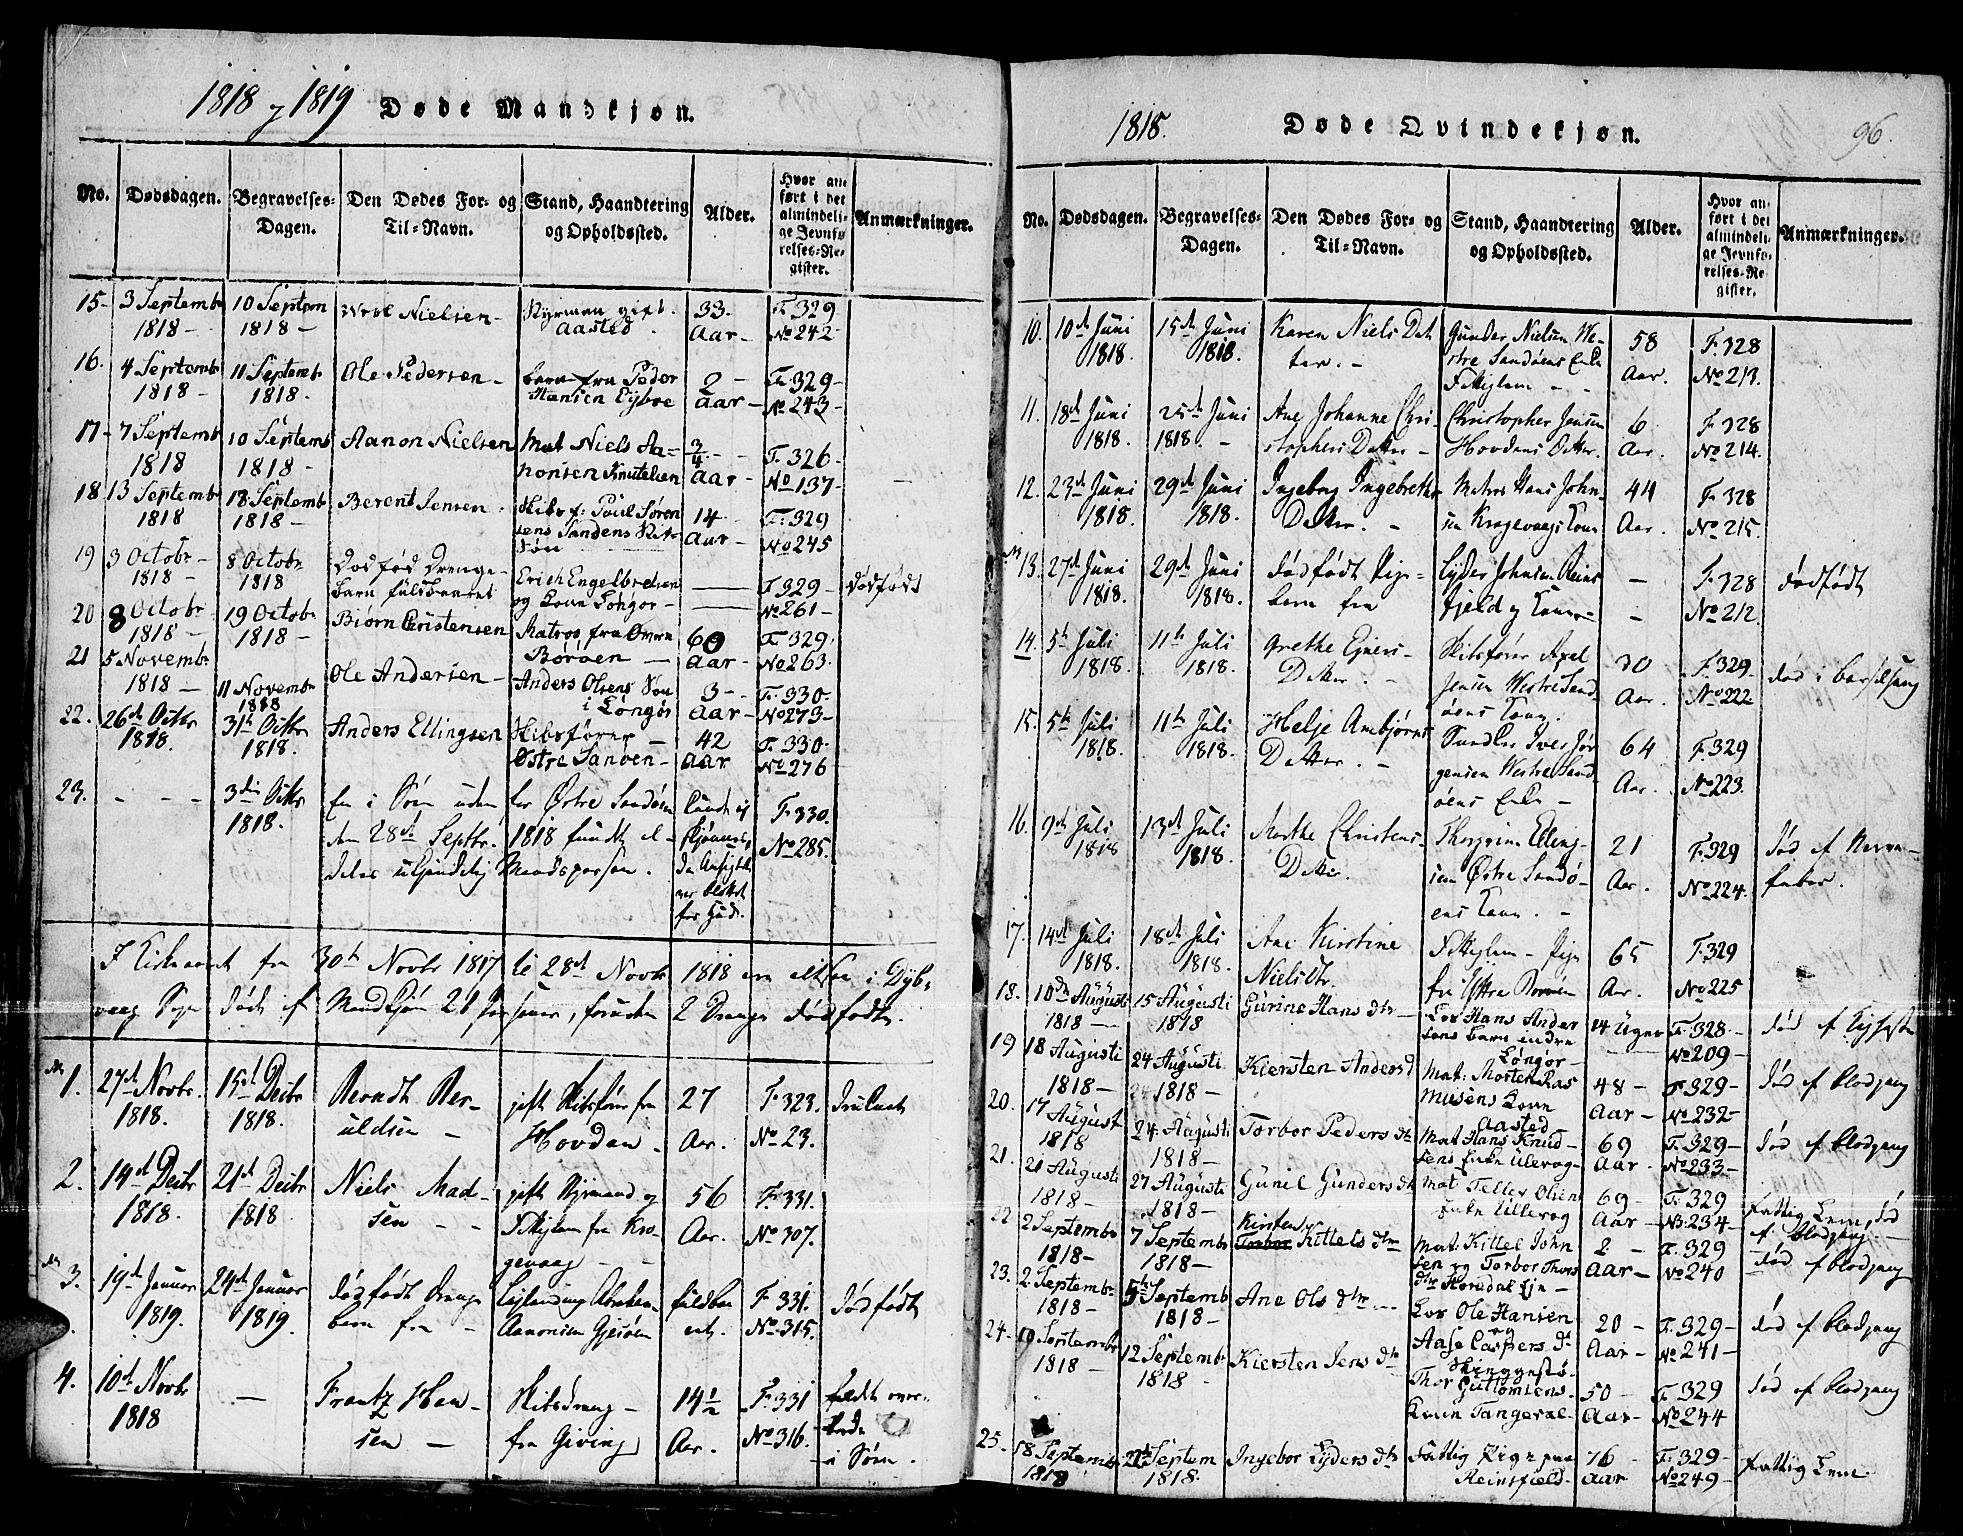 1818 og 1819 Døde Mandkjøn.
No. Dødsdagen. Begravelses-Dagen. Den Dødes For- og Til-Navn. Stand, Haandtering og Opholdssted. Alder. Hvor anført i det almindelige Jevnførelses-Register. Anmærkninger.
15- 3 Septembr 1818 - 10 Septem 1818 - Nielsen - Styrman gift. Aasted. 33 Aar - F. 329 No 242
16. 4 Septemb 1818 - 11 Septemb 1818. Ole Pedersen - barn fra Peder Hansen Eyboe 2 - Aar - F. 329 - No 243 -
17- 7 Septemb 1818 10 Septemb 1818 - Aanon Nielsen Mat Niels Aanonsen 3/4 Aar - F. 326 - No 137 -
18 13 Septemb 1818 18 Septemb 1818 - Berent Jensen Skibsf: Poul Sørensens Sandens Søn 14 - Aar - F. 329 No 245
19 3 Octobr - 1818 - 8 Octobr 1818 Dødfød Drengebarn fuldbaaret Erich Engelbretsen og Kone Løngør - F. 329 - No 261 - dødfødt
20 8 Octobr - 1818 - 19 Octobr 1818 - Biørn Christensen Matros fra Børøen - 60 Aar - F. 329. No 263.
21 5 Novembr 1818 - 11 Novembr 1818 Ole Andersen - Anders Olsens Søn i Løngør 3 - Aar - F. 330 - No 273 -
22. 26de Octbr 1818. 31te Octbr 1818. Anders Ellingsen Skibsfører - Østre Sanøen - 42 Aar F. 330 - No 276
23. - - - 3die Octbr 1818. En i Søen uden for Østre Sandøen den 28de Septbr. 1818 funden aldeles ukjendelig Mandsperson. Kunde ej skjønnes, da Ansigtet var blottet for Hud. F. 330. No 285.
I Kirkeaaret fra 30te Novbr 1817 til 28de Novbr 1818 ere altsaa i Dybvaag Sogn døde af Mandkjøn 21 Personer, foruden 2 Drenge dødfødte.
1. 27de Novbr. 1818. 15de Decbr 1818. Berndt Beruldsen - gift Skibsfører fra Hovden - 27 Aar. F. 323. No 23. Druknet
2. 14de Decbr 1818. 21de Decbr 1818. Niels Madsen - - gift Styrmand og fra Krogevaag - - 56 Aar. F. 331. No 307.
3. 19de Januar 1819. 24de Januar 1819. dødfødt Drengebarn fra - Abraham Aanonsen Gjesøen fuldbaaret. F. 331. No 315. dødfødt
4. 10de Novbr 1818 - Frantz Hansen - Skibsdreng - fra Giving 14 1/2 Aar. F. 331 No 316. i Søen.
1818. Døde Qvindekjøn. 96.
No. Dødsdagen. Begravelses-Dagen. Den Dødes For- og Til-Navn. Stand, Haandtering og Opholdssted. Alder. Hvor anført i det almindelige Jevnførelses-Register. Anmærkninger.
10. 10de Juni 1818. 15de Juni 1818. Karen Niels Datter. - Gunder Nielsen Westre Sandøens Enke - - 58 Aar. F. 328 No 213.
11. 18de Juni 1818. 25de Juni 1818. - Ane Johanne Christophers Datter - Christopher Jensen Hovdens Datter. 6 Aar. F. 328 No 214.
12. 23de Juni 1818. 29de Juni 1818. Ingeborg Ingebreths Datter. - Matros Hans Johnsen Kragevaags Kone 44 Aar. F. 328 No 215.
13. 27de Juni 1818. 29de Juni 1818. dødfødt Pigebarn fra Eyder Johnsen Reinsfjeld og Kone - - F. 328 No 212 dødfødt
14. 5te Juli 1818. 11te Juli 1818. Grethe Ejners Datter. - Skibsfører Axel Jensen Westre Sandøens Kone. 30 Aar. F. 329. No 222 død i barselseng
15. 5te Juli 1818. 11te Juli 1818. Helje Ambjørns Datter. - Iver Jørgensen Westre Sandøens Enke - 64 Aar. F. 329 No 223.
16. 9de Juli 1818 13de Juli 1818. Marthe Christens Datter. Thorgrim Ellingsen Østre Sandøens Kone. - 21 Aar. F. 329 No 224. død af Nervefeber.
17. 14de Juli 1818. 18de Juli 1818. Ane Kirstine Nielsdtr. Pige fra Ystre Borøen 65 Aar. F. 329 No 225
18. 10de Augusti 1818 - 15 Augusti 1818 Gurine Hans dtr - Hans Andersens barn Løngør - 14 Uger F. 328 - No 209 - død af
19 18 Augusti 1818 - 24 Augusti - 1818 - Kiersten Anders d Mat: Morten Rasmusens Kone Aasted 48 - Aar - F. 329 - No 232 - død af blodgang
20. 17 August 1818 24 Augusti 1818 - Torbor Peders dtr Mat Hans Knudsens Enke Ulevog - 69 Aar - F. 329 - No 233 - død af blodgang
21. 21 Augusti 1818 - 27 Augusti 1818 - Gunil Gunders dtr Mat Tellef Olsens Enke Ulevog 69 - Aar - F. 329 No 234 - fattig Lem, død af blodgang. -
22 2 Septembr 1818 - 7 Septemb 1818 - Kirsten Torbor Kittels dtr Mat: Kittel Johnsen og Torbor Thors dtr 2 - Aar - F. 329 No 240 død af blodgang
23. 2 Septembr 1818 - 5te Septemb 1818 - Ane Ols dtr - Ole Hansen og Aase Caspers dt 20 - Aar - F. 329 - No 241 - død af blodgang
24 - 9 Septembr 1818 - 12 Septemb 1818 - Kiersten Jens dtr Thor Guttormsens Kone Tangeral - 50 - Aar - F. 329 No 244 død af blodgang
25 - 18 Septembr 1818 Septem 1818. Ingebor Eyders dtr Fattig Pige paa Reinsfield - 76 - Aar F. 329 - No 249 - fattig Lem